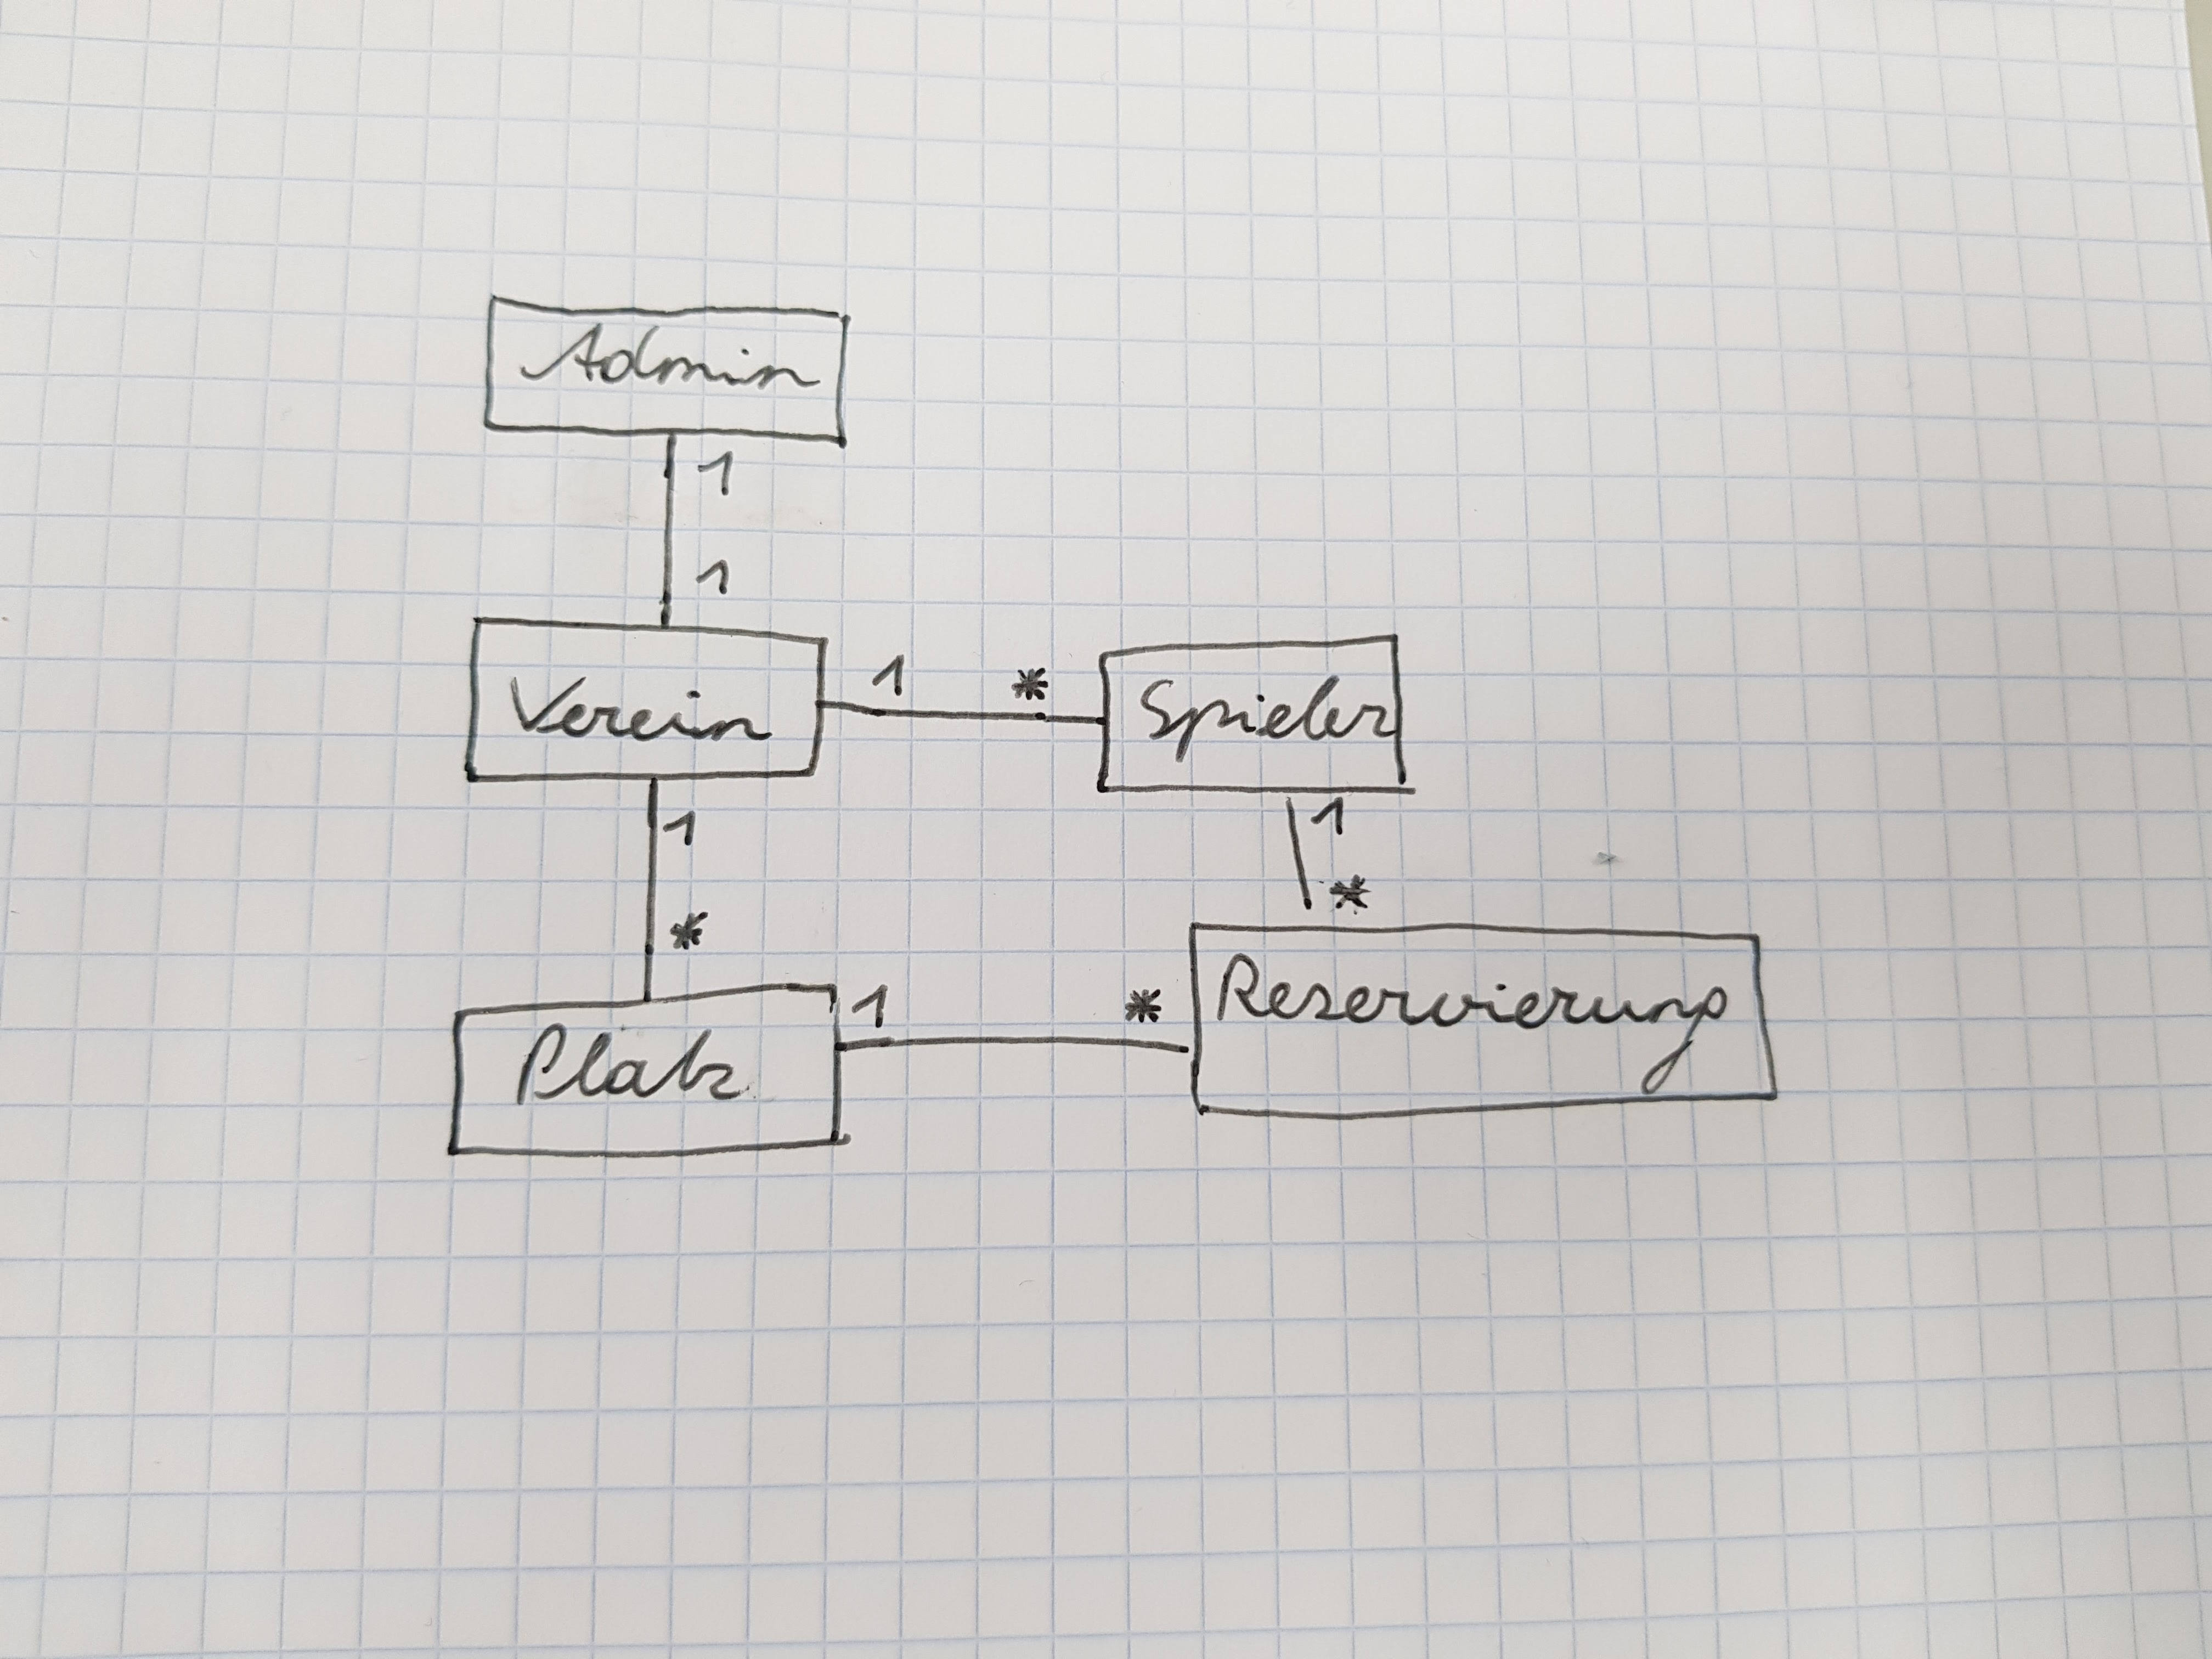 Admin
1
1
Verein
1 *
Spieler
1
*
1
*
Platz
1 *
Reservierung